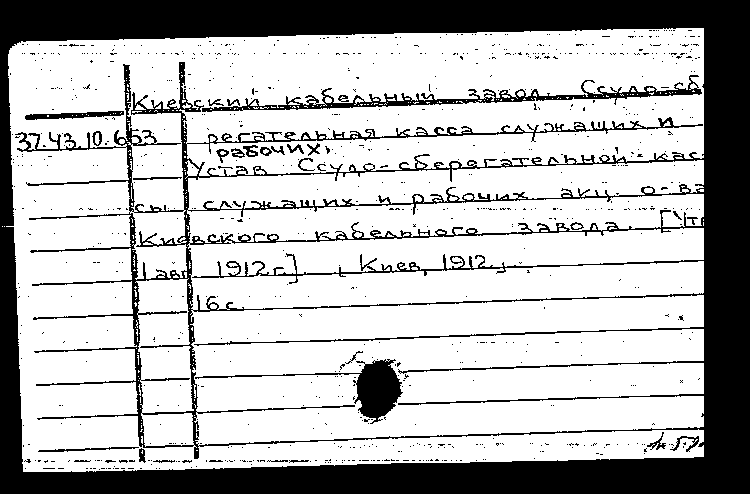 Киевский кабельный завод. Ссудо-сб
37.43.10.653 регательная касса служащих и
рабочих.
Устав Ссудо-сберегательной кас-
сы служащих и рабочих акц. о-ва
Киевского кабельного завода. [Утв
1 авг. 1912 г.] Киев, 1912.
16 с.